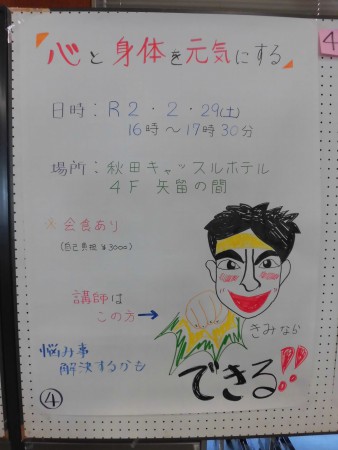 心と身体を元気にする
日時：R2・2・29(土)
16時～17時30分
場所：秋田キャッスルホテル
4F 矢留の間
※会食あり
(自己負担 ¥3000)
講師は
この方→
きみなら
できる!!
悩み事
解決するかも
④
4